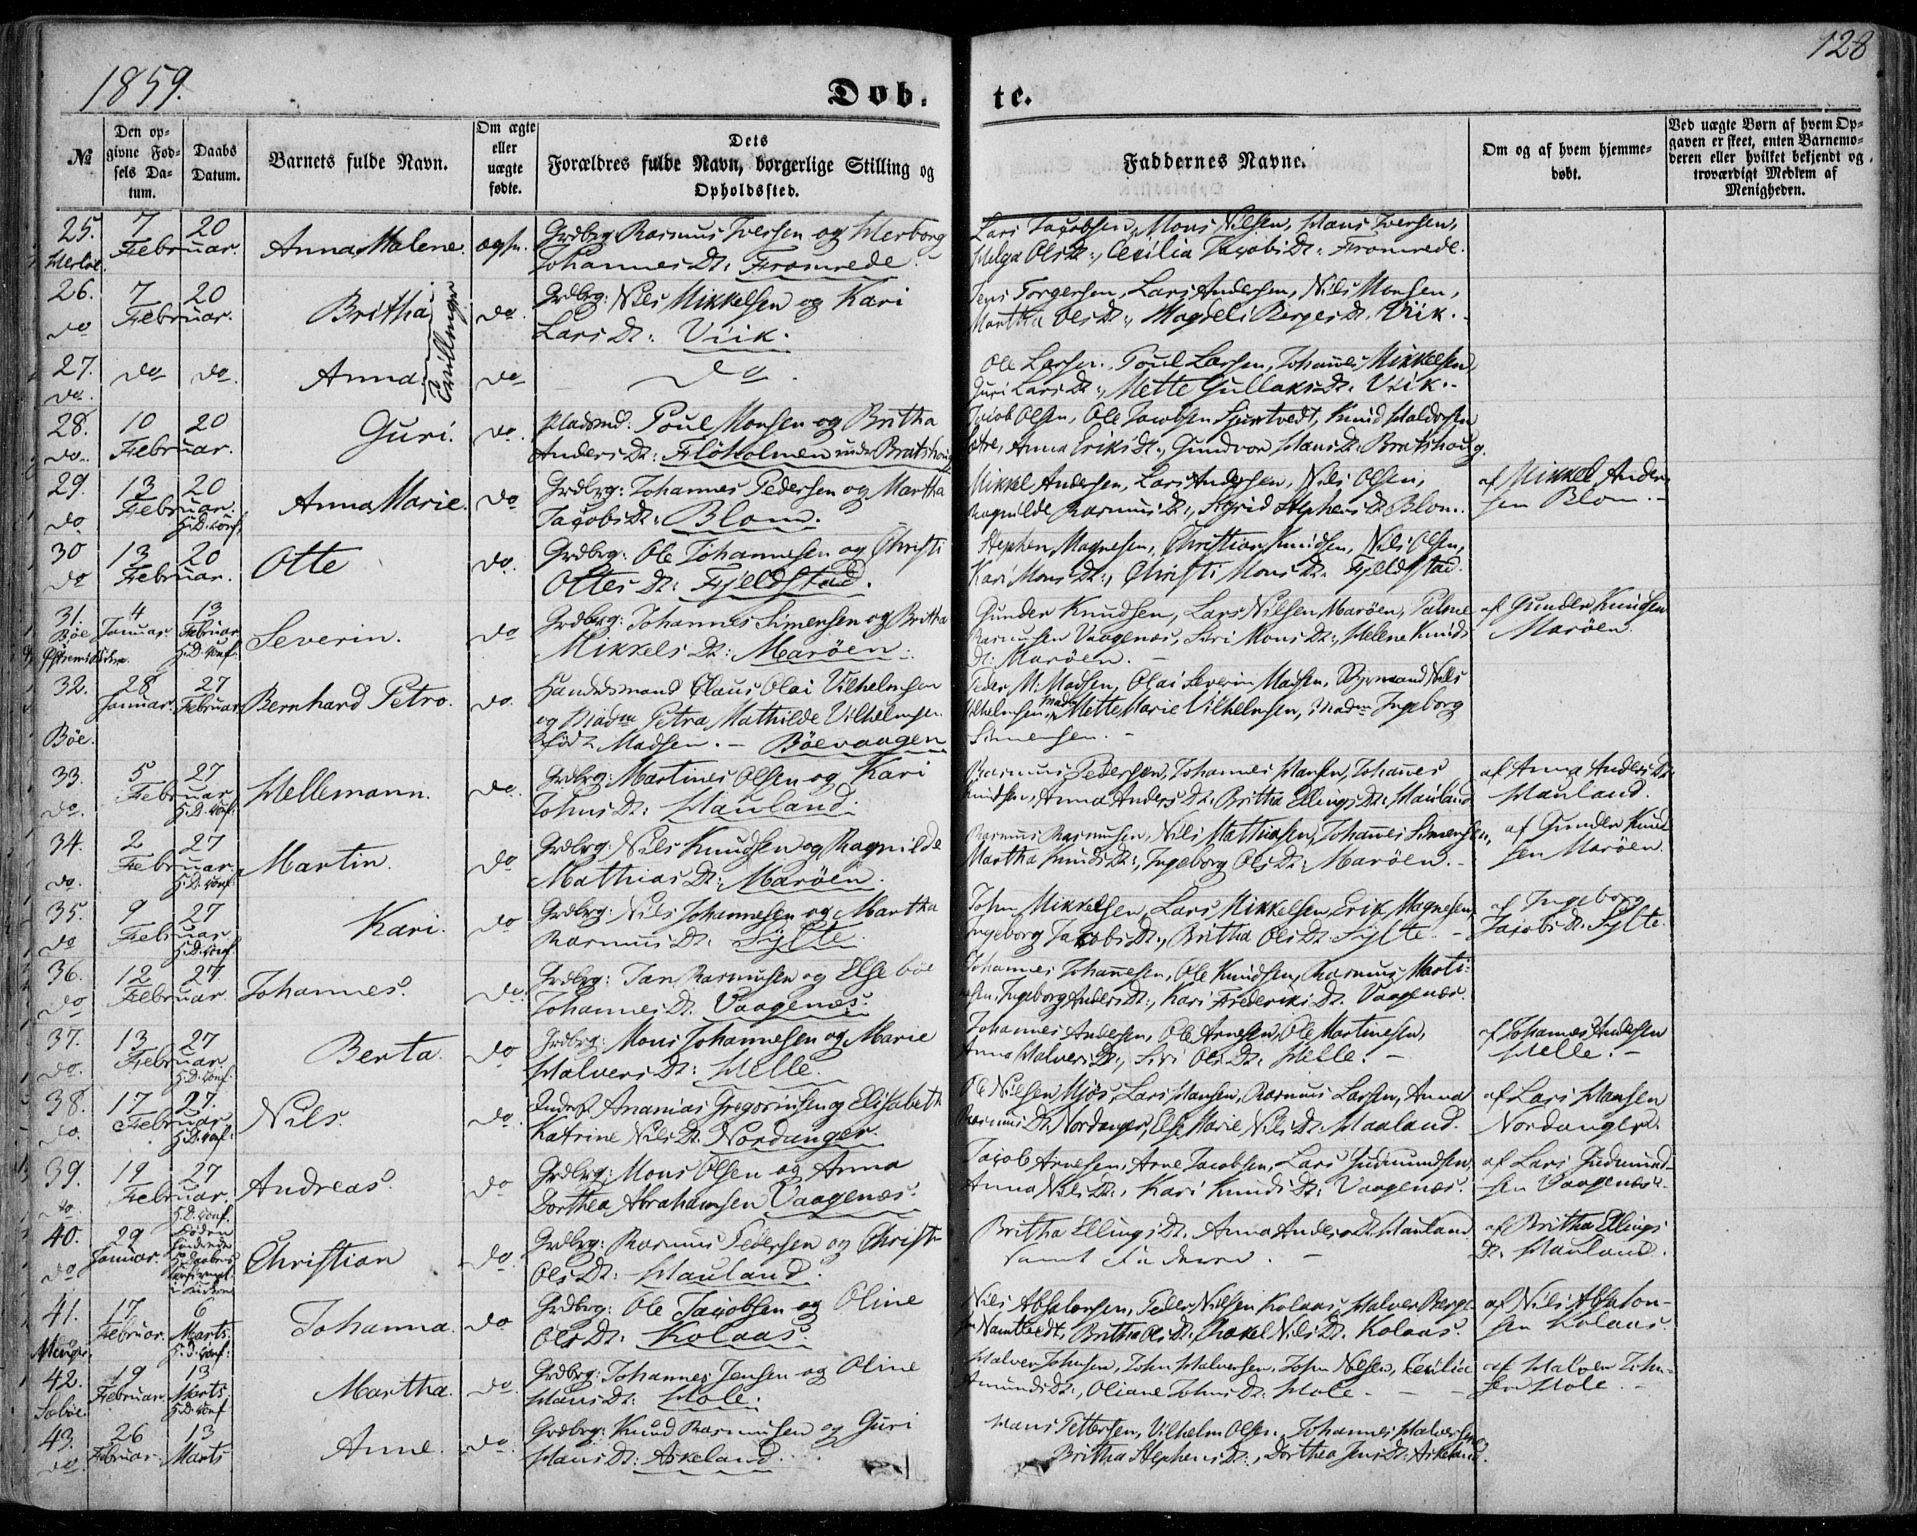 1859.
128
Døb.
te.
№
Den op-
givne Fød-
sels Da-
tum.
Daabs
Datum.
Barnets fulde Navn.
Om ægte
eller
uægte
fødte.
Dets
Forældres fulde Navn, borgerlige Stilling og
Opholdssted.
Faddernes Navne.
Om og af hvem hjemme-
døbt.
Ved uægte Børn af hvem Op-
gaven er skeet, enten Barnemo-
deren eller hvilket bekjendt og
troværdigt Medlem af
Menigheden.
25. 7 20
Februar. Anna Malene.
Grdbrg Rasmus Iversen og Herborg
Johannes Dt: Fromrede.
Lars Jacobsen, Mons Nilsen, Hans Iversen,
Helga Ols Dt:, Cecilia Jacobs Dt. Fromrede.
26. 7 20
do Februar. Britha Tvillinger do.
Grdbrg: Nils Mikkelsen og Kari
Lars Dt: Viik.
Jens Torgersen, Lars Andersen, Nils Monsen,
Martha Ols Dt:, Magseli Berges Dt. Viik.
27. do do. Anna do
do. do.
Ole Larsen, Poul Larsen, Johannes Mikkelsen,
Guri Lars Dt:, Mette Gullaks Dt. Viik.
28. 10 20
do. Februar. Guri. do.
Pladsmd. Poul Monsen og Britha
Anders Dt: Fløholmen under Bratshoug
Jacob Olsen, Ole Jacobsen Hjertvedt, Knud Haldorsen
Anna Eriks Dt:, Gundvor Hans Dt. Bratshoug.
29. 13 20
do Februar. H.D. conf. Anna Marie. do
Grdbrg: Johannes Pedersen og Martha
Jacobs Dt: Blom.
Mikkel Andersen, Lars Andersen, Nils Olsen,
Ragnilde Rasmus Dt:, Sigrid Stephens Dt. Blom.
af Mikkel Ander-
sen Blom.
30 13 20
do Februar. Otte do.
Grdbrg: Ole Johannesen og Christi
Ottes Dt: Fjeldstad.
Stephen Magnesen, Christian Knudsen, Nils Olsen,
Kari Mons Dt:, Christi Mons Dt. Fjeldstad.
31. 4 13
Bøe Januar. Februar H.D. conf. Severin. do
Grdbrg: Johannes Simensen og Britha
Mikkels Dt: Marøen.
Gunder Knudsen, Lars Nilsen Marøen, Palme
Rasmusen Vaagenæs, Siri Mons Dt:, Helene Knuds
Dt: Marøen.
af Gunder Knudsen
Marøen.
32. 28 27
Januar. Februar Bernhard Petro. do.
Bøe.
Handelsmand Claus Olai Vilhelmsen
og Madm Petra Mathilde Vilhelmsen
født Madsen. - Bøevaagen
Peder M. Madsen, Olai Severin Madsen, Styrmand Nils
Vilhelmsen, Madm Mette Marie Vilhelmsen, Madm Ingeborg
Simensen.
33. 5 27
do. Februar H.D. conf. Hellemann. do.
Grdbrg: Martines Olsen og Kari
Johns Dt: Hauland.
Rasmus Pedersen, Johannes Hansen, Johannes
Knudsen, Anna Anders Dt. Britha Ellings Dt: Hauland
af Anna Anders Dt.
Hauland.
34. 2 27
do. Februar. H.D. conf. Martin. do
Grdbrg: Nils Knudsen og Ragnilde
Mathias Dt: Marøen.
Rasmus Rasmusen, Nils Mathiasen, Johannes Simensen,
Martha Knuds Dt:, Ingeborg Ols Dt: Marøen.
af Gunder Knud-
sen Marøen.
35. 9 27
do Februar H.D. conf. Kari. do
Grdbrg: Nils Johannesen og Martha
Rasmus Dt. Sylte.
John Mikkelsen, Lars Mikkelsen, Erik Magnesen,
Ingeborg Jacobs Dt:, Britha Ols Dt. Sylte.
af Ingeborg
Jacobs Dt. Sylte.
36. 12 27
do Februar Johannes. do.
Grdbrg: Jan Rasmusen og Elsebøe
Johannes Dt. Vaagenæs.
Johannes Johannesen, Ole Knudsen, Rasmus Marti-
nsen, Ingeborg Anders Dt:, Kari Frederiks Dt. Vaagenæs.
37. 13 27
do. Februar. H.D. conf. Berta. do
Grdbrg: Mons Johannesen og Marie
Halvers Dt: Helle.
Johannes Andersen, Ole Arnesen, Ole Martinesen,
Anna Halvers Dt:, Siri Ols Dt: Helle.
af Johannes Andersen
Helle.
38. 17 27.
do. Februar H.D. conf: Nils. do.
Inderst Ananias Gregoriusen og Elisabeth
Katrine Nils Dt. Nordanger.
Ole Nilsen Mjøs, Lars Hansen, Rasmus Larsen, Anna
Rasmus Dt. Nordanger, Else Marie Nils Dt. Hauland.
af Lars Hansen
Nordanger.
39. 19 27
do. Februar. H.D. conf. Andreas. do
Grdbrg: Mons Olsen og Anna
Dorthea Abrahamsen Vaagenæs.
Jacob Arnesen, Arne Jacobsen, Lars Gudmundsen,
Anna Nils Dt:, Kari Knuds Dt: Vaagenæs.
af Lars Gudmund-
sen Vaagenæs.
40. 29
do Januar. Christian do.
Grdbrg: Rasmus Pedersen og Christi
Ols Dt: Hauland.
Britha Ellings Dt. Anna Anders Dt. Hauland
samt Faderen.
af Britha Ellings
Dt. Hauland.
41. 17 6
Februar. Marts. H.D. conf: Johanna. do
Grdbrg: Ole Jacobsen og Oline
Ols Dt: Kolaas.
Nils Absalonsen, Peder Nilsen Kolaas, Halver Berge-
sen Namtvedt, Britha Ols Dt, Rakel Nils Dt. Kolaas.
af Nils Absalon-
sen Kolaas.
42. 19 13
Sæbøe. Februar. Marts H.D. conf Martha. do.
Grdbrg: Johannes Jensen og Oline
Hans Dt: Hole.
Halver Johnsen, John Halversen, John Nilsen, Cecilia
Amunds Dt:, Oliane Johns Dt. Hole.
af Halver John-
sen Hole.
43. 26 13
do. Februar. Marts Anne. do.
Grdbrg: Knud Rasmusen og Guri
Hans Dt: Askeland.
Hans Pettersen, Vilhelm Olsen, Johannes Halversen,
Britha Stephens Dt:, Dorthea Jens Dt: Askeland.